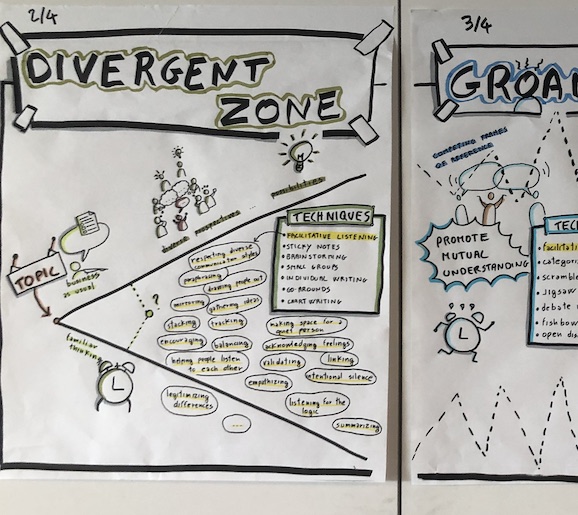 2/4
DIVERGENT
ZONE
diverse perspectives possibilities
TOPIC
business
as usual
familiar
thinking
?
TECHNIQUES
• FACILITATIVE LISTENING
• STICKY NOTES
• BRAINSTORMING
• SMALL GROUPS
• INDIVIDUAL WRITING
• GO-ROUNDS
• CHART WRITING
respecting diverse
communication styles
paraphrasing
drawing people out
mirroring
gathering ideas
stacking
tracking
making space for a
quiet person
encouraging
balancing
acknowledging feelings
helping people listen
to each other
validating
linking
empathizing
intentional silence
legitimizing
differences
listening for the
logic
...
summarizing
3/4
GROA
COMPETING FRAMES
OF REFERENCE
PROMOTE
MUTUAL
UNDERSTANDING
TEC
• facilitat
• categori
• scramble
• Jigsaw
• debate
• fishbow
• open di